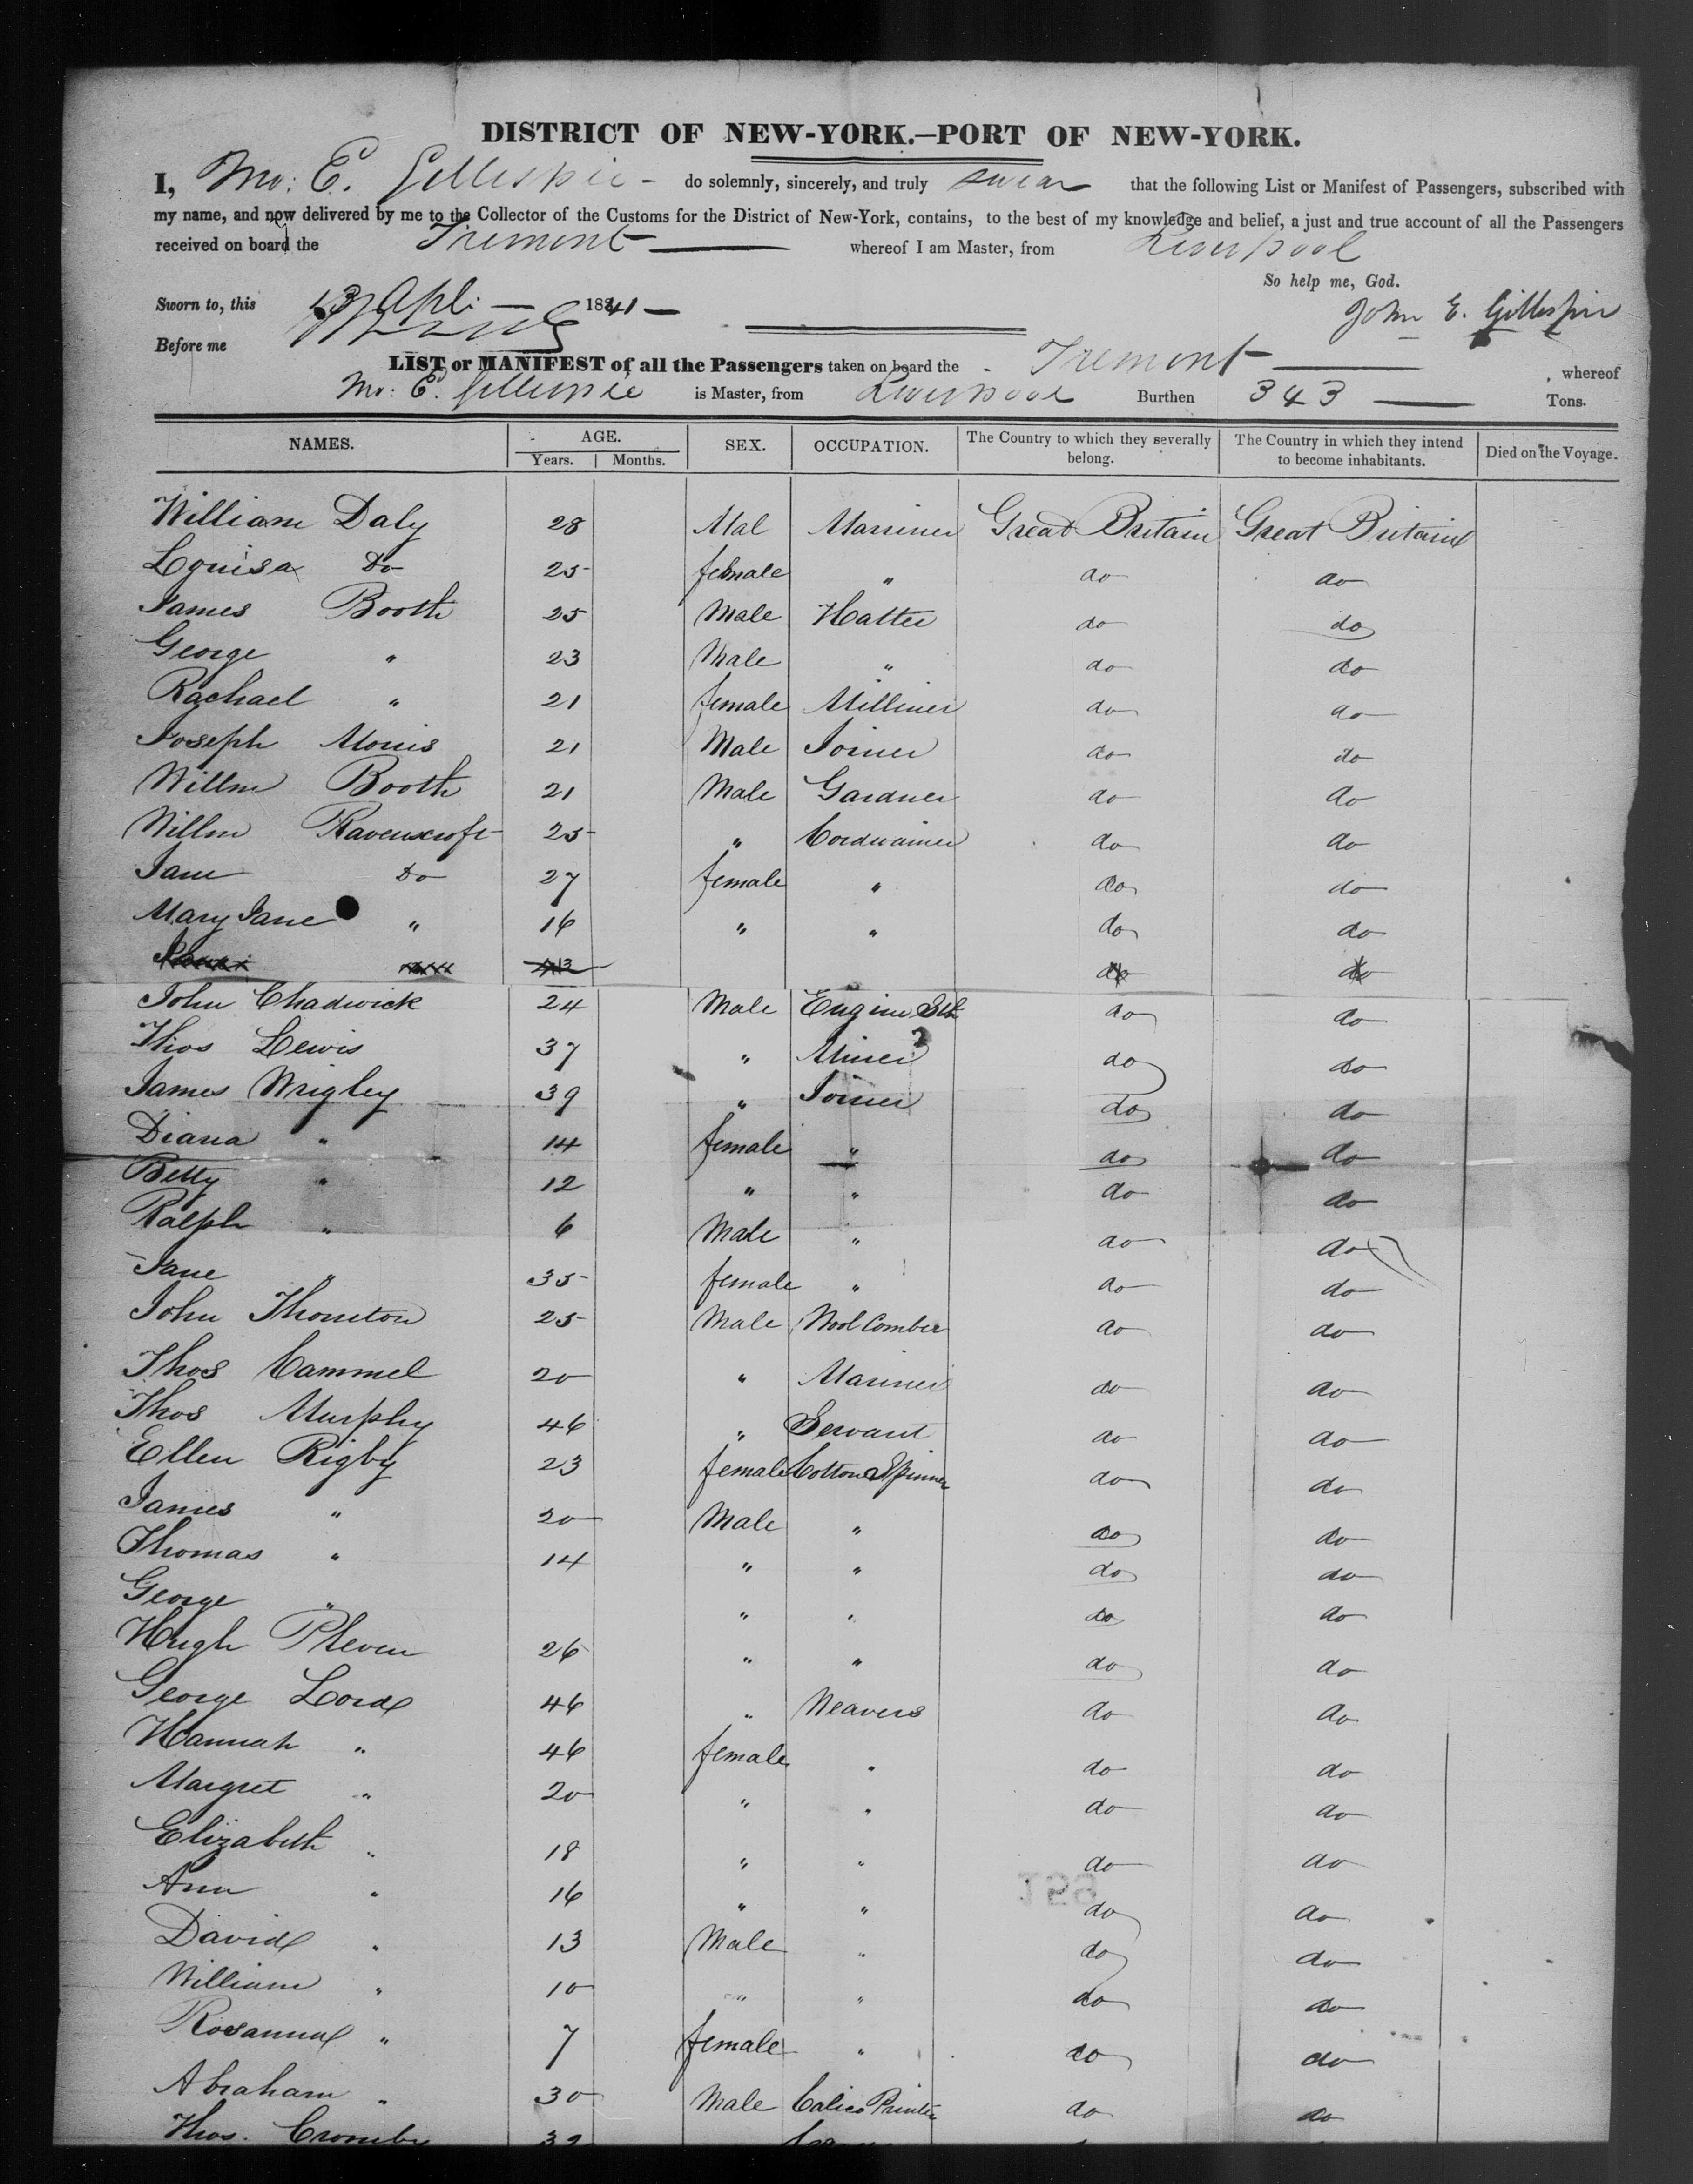 DISTRICT OF NEW-YORK.—PORT OF NEW-YORK.
I, Mr: E. Gillespie - do solemnly, sincerely, and truly swear that the following List or Manifest of Passengers, subscribed with
my name, and now delivered by me to the Collector of the Customs for the District of New-York, contains, to the best of my knowledge and belief, a just and true account of all the Passengers
received on board the Tremont whereof I am Master, from Liverpool
So help me, God.
Sworn to, this Apl: 1841
John E. Gillespie
Before me
LIST or MANIFEST of all the Passengers taken on board the Tremont whereof
Mr: E. Gillespie is Master, from Liverpool Burthen 343 Tons.
NAMES. AGE. Years. Months. SEX. OCCUPATION. The Country to which they severally belong. The Country in which they intend to become inhabitants. Died on the Voyage.
William Daly 28 Mal Marriner Great Britain Great Britain
Louisa Do 25 female " do do
James Booth 25 Male Hatter do do
George " 23 Male " do do
Rachael " 21 female Milliner do do
Joseph Morris 21 Male Joiner do do
Willm Booth 21 Male Gardner do do
Willm Ravenscroft 25 " Cordwainer do do
Jane Do 27 female " do do
Mary Jane " 16 " " do do
do do
John Chadwick 24 Male Engine do do
Thos Lewis 37 " Miner do do
James Wrigley 39 " Joiner do do
Diana " 14 female " do do
Betty " 12 " " do do
Ralph " 6 Male " do do
Jane " 35 female " do do
John Thornton 25 Male Wool Comber do do
Thos Cammel 20 " Mariner do do
Thos Murphy 46 " Servant do do
Ellen Rigby 23 female Cotton Spinner do do
James " 20 Male " do do
Thomas " 14 " " do do
George " " " do do
Hugh 26 " " do do
George Lord 46 " Weavers do do
Hannah " 46 female " do do
Margret " 20 " " do do
Elizabeth " 18 " " do do
Ann " 16 " " do do
David " 13 Male " do do
William " 10 " " do do
Rosannah " 7 female " do do
Abraham " 30 Male Calico Printer do do
Thos. Cromby